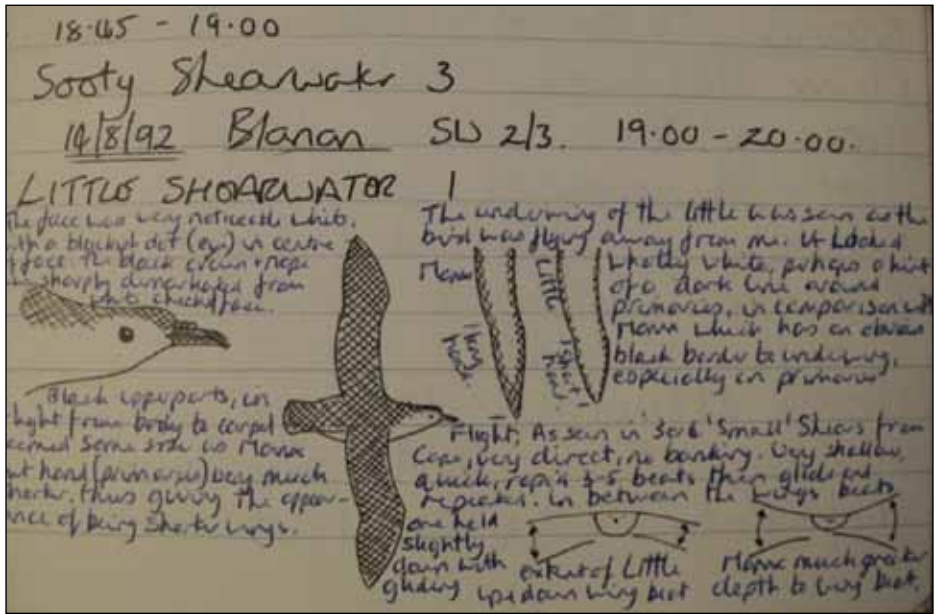 18·45 - 19·00
Sooty Shearwater 3
14/8/92 Blanan SW 2/3. 19·00 - 20·00.
LITTLE SHEARWATER 1
The face was very noticeable white,
with a blackish dot (eye) in centre
of face. The black crown + nape
sharply demarkated from
white cheeks/face.
Black upperparts, in
flight from body to carpal
seemed same size as Manx
but hand (primaries) very much
shorter, thus giving the appear-
ance of being shorter wings.
The underwing of the little was seen as the
bird was flying away from me. It looked
wholly white, perhaps a hint
of a dark line around
primaries, in comparison with
Manx which has an obvious
black border to underwing,
especially on primaries
Manx
long hand
Little
short hand
Flight; As seen in 3or4 'Small' Shears from
Cape, very direct, no banking. Very shallow,
quick, rapid 3-5 beats then glide and
repeated. In between the wings beats
are held
slightly
down with
gliding
extent of Little
up+down wing beat
Manx much greater
depth to wing beat.